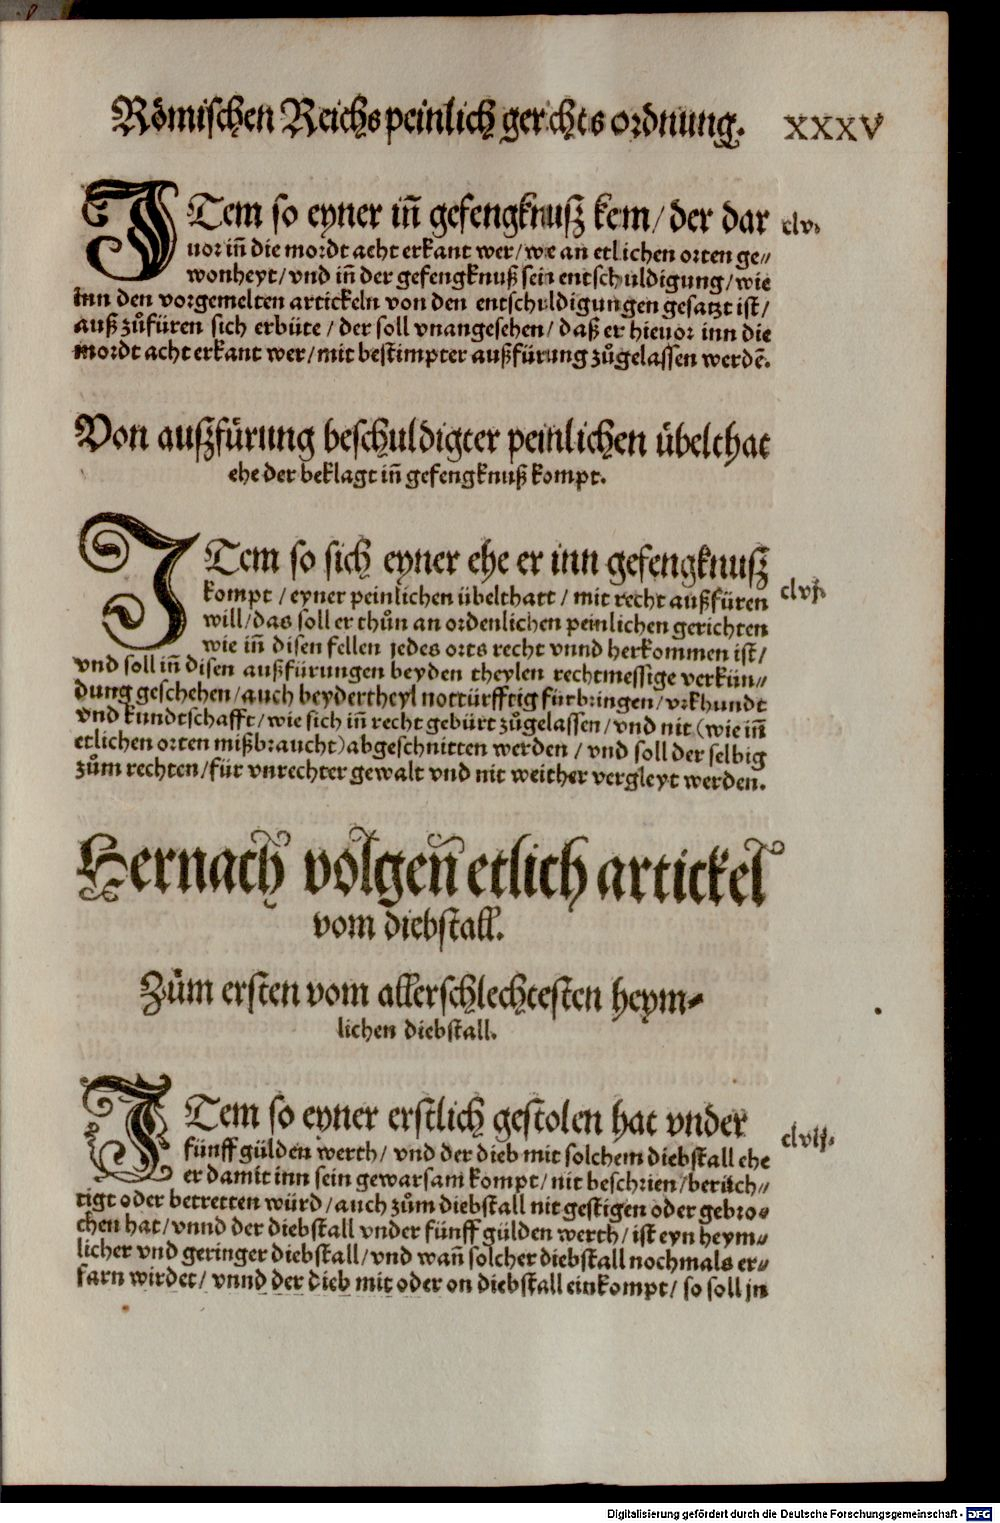 Römischen Reichs peinlich gerichts ordnung. XXXV
ITem so eyner iñ gefengknusz kem / der dar clv.
uor iñ die mordt acht erkant wer / wie an etlichen orten ge⸗
wonheyt / vnd iñ der gefengknuß sein entschuldigung / wie
inn den vorgemelten artickeln von den entschuldigungen gesatzt ist /
auß zůfüren sich erbüte / der soll vnangesehen / daß er hieuor inn die
mordt acht erkant wer / mit bestimpter außfürung zůgelassen werdẽ.
Von auszfürung beschuldigter peinlichen übelthat
ehe der beklagt iñ gefengknuß kompt.
ITem so sich eyner ehe er inn gefengknusz
kompt / eyner peinlichen übelthatt / mit recht außfüren clvj.
will / das soll er thůn an ordenlichen peinlichen gerichten
wie iñ disen fellen jedes orts recht vnnd herkommen ist /
vnd soll iñ disen außfürungen beyden theylen rechtmessige verkün⸗
dung geschehen / auch beydertheyl nottürfftig fürbringen / vrkhundt
vnd kundtschafft / wie sich iñ recht gebürt zůgelassen / vnd nit (wie iñ
etlichen orten mißbraucht) abgeschnitten werden / vnd soll der selbig
zům rechten / für vnrechter gewalt vnd nit weither vergleyt werden.
Hernach volgeñ etlich artickel
vom diebstall.
Zům ersten vom allerschlechtesten heym⸗
lichen diebstall.
ITem so eyner erstlich gestolen hat vnder clvij.
fünff gülden werth / vnd der dieb mit solchem diebstall ehe
er damit inn sein gewarsam kompt / nit beschrien / berüch⸗
tigt oder betretten würd / auch zům diebstall nit gestigen oder gebro⸗
chen hat / vnnd der diebstall vnder fünff gülden werth / ist eyn heym⸗
licher vnd geringer diebstall / vnd wañ solcher diebstall nochmals er⸗
farn wirdet / vnnd der dieb mit oder on diebstall einkompt / so soll jn
Digitalisierung gefördert durch die Deutsche Forschungsgemeinschaft - DFG